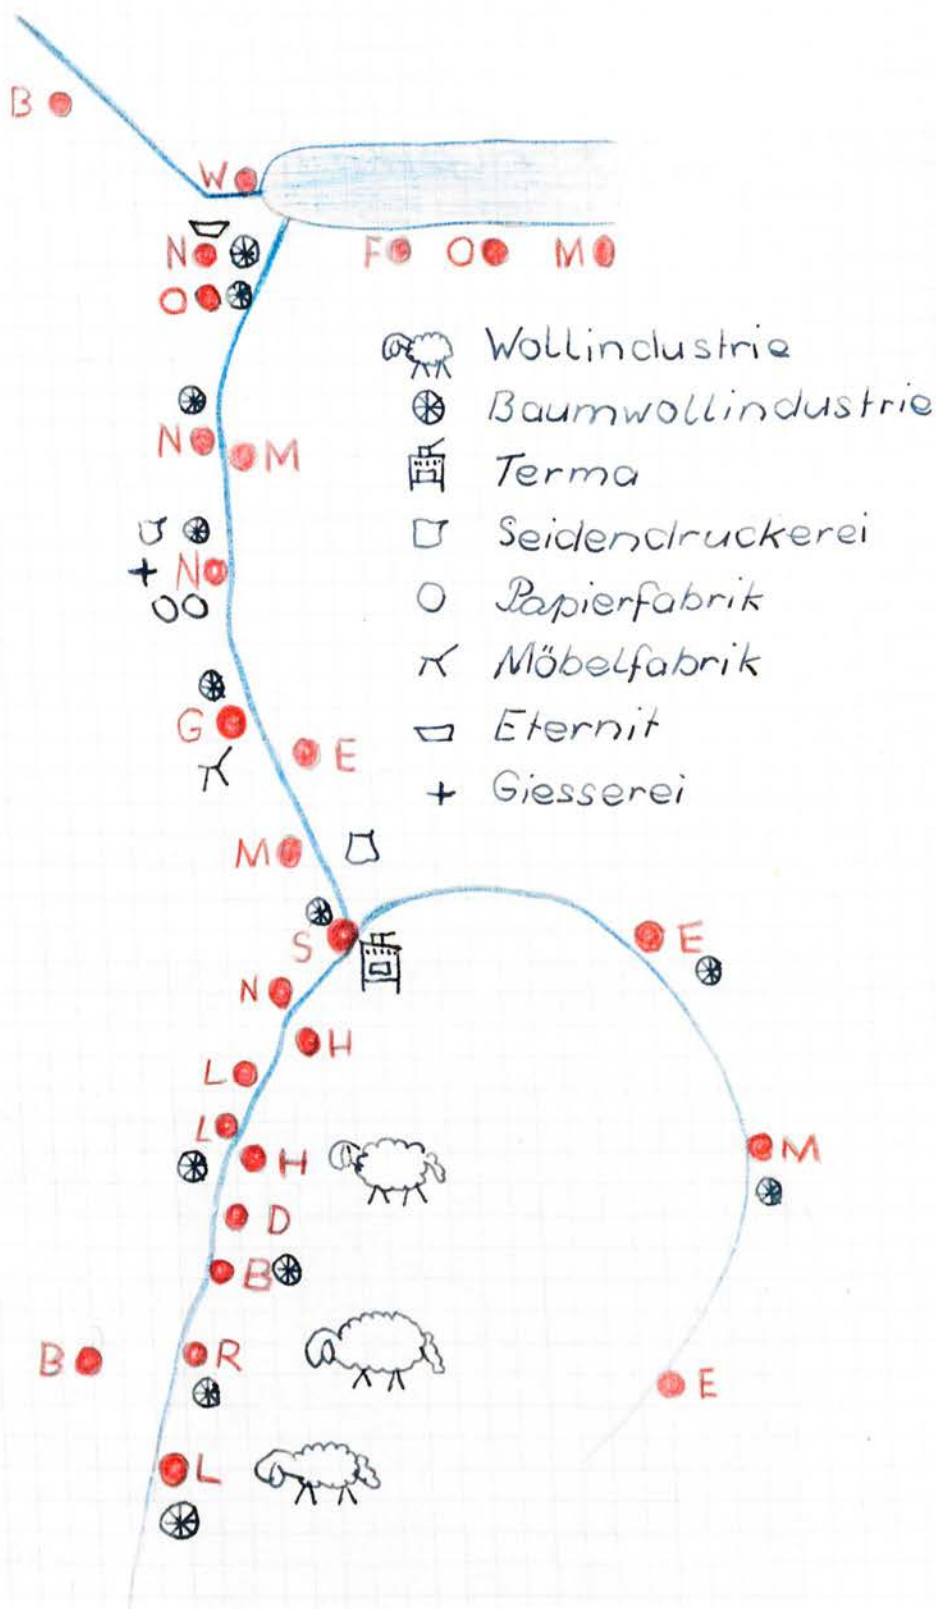 B
W
N
F O M
O
Wollindustrie
Baumwollindustrie
N M
Terma
Seidendruckerei
N
Papierfabrik
Möbelfabrik
G
Eternit
E
Giesserei
M
S E
N
H
L
L
H M
D
B
B R
E
L